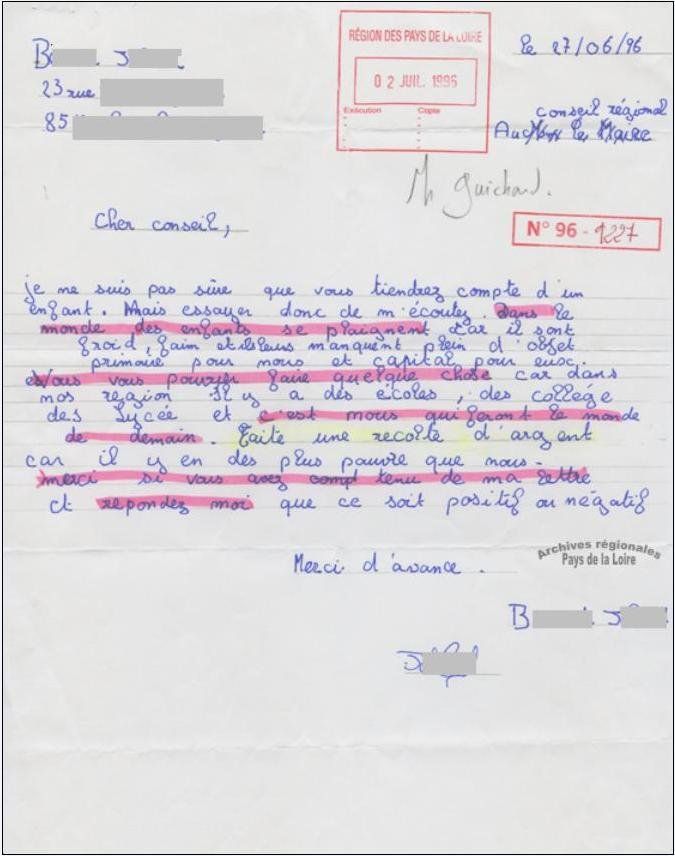 B J
23 rue
85
RÉGION DES PAYS DE LA LOIRE
02 JUIL. 1996
Exécution Copie
le 27/06/96
conseil régional
Au Mon le Maire
Mr Guichard.
N° 96 - 1227
Cher conseil,
je ne suis pas sûre que vous tiendrez compte d'un
enfant. Mais essayer donc de m'écoutez. Dans le
monde des enfants se plaignent car il sont
froid, faim et il leurs manquent plein d'objet
primaire pour nous et capital pour eux.
Vous vous pourrier faire quelque chose car dans
nos reagion il y a des écoles, des collège
des Lycée et c'est nous qui feront le monde
de demain. Faite une recolte d'argent
car il y en des plus pauvre que nous.
merci si vous avez compt tenu de ma lettre
et repondez moi que ce soit positif ou négatif
Merci d'avance.
Archives régionales
Pays de la Loire
B J